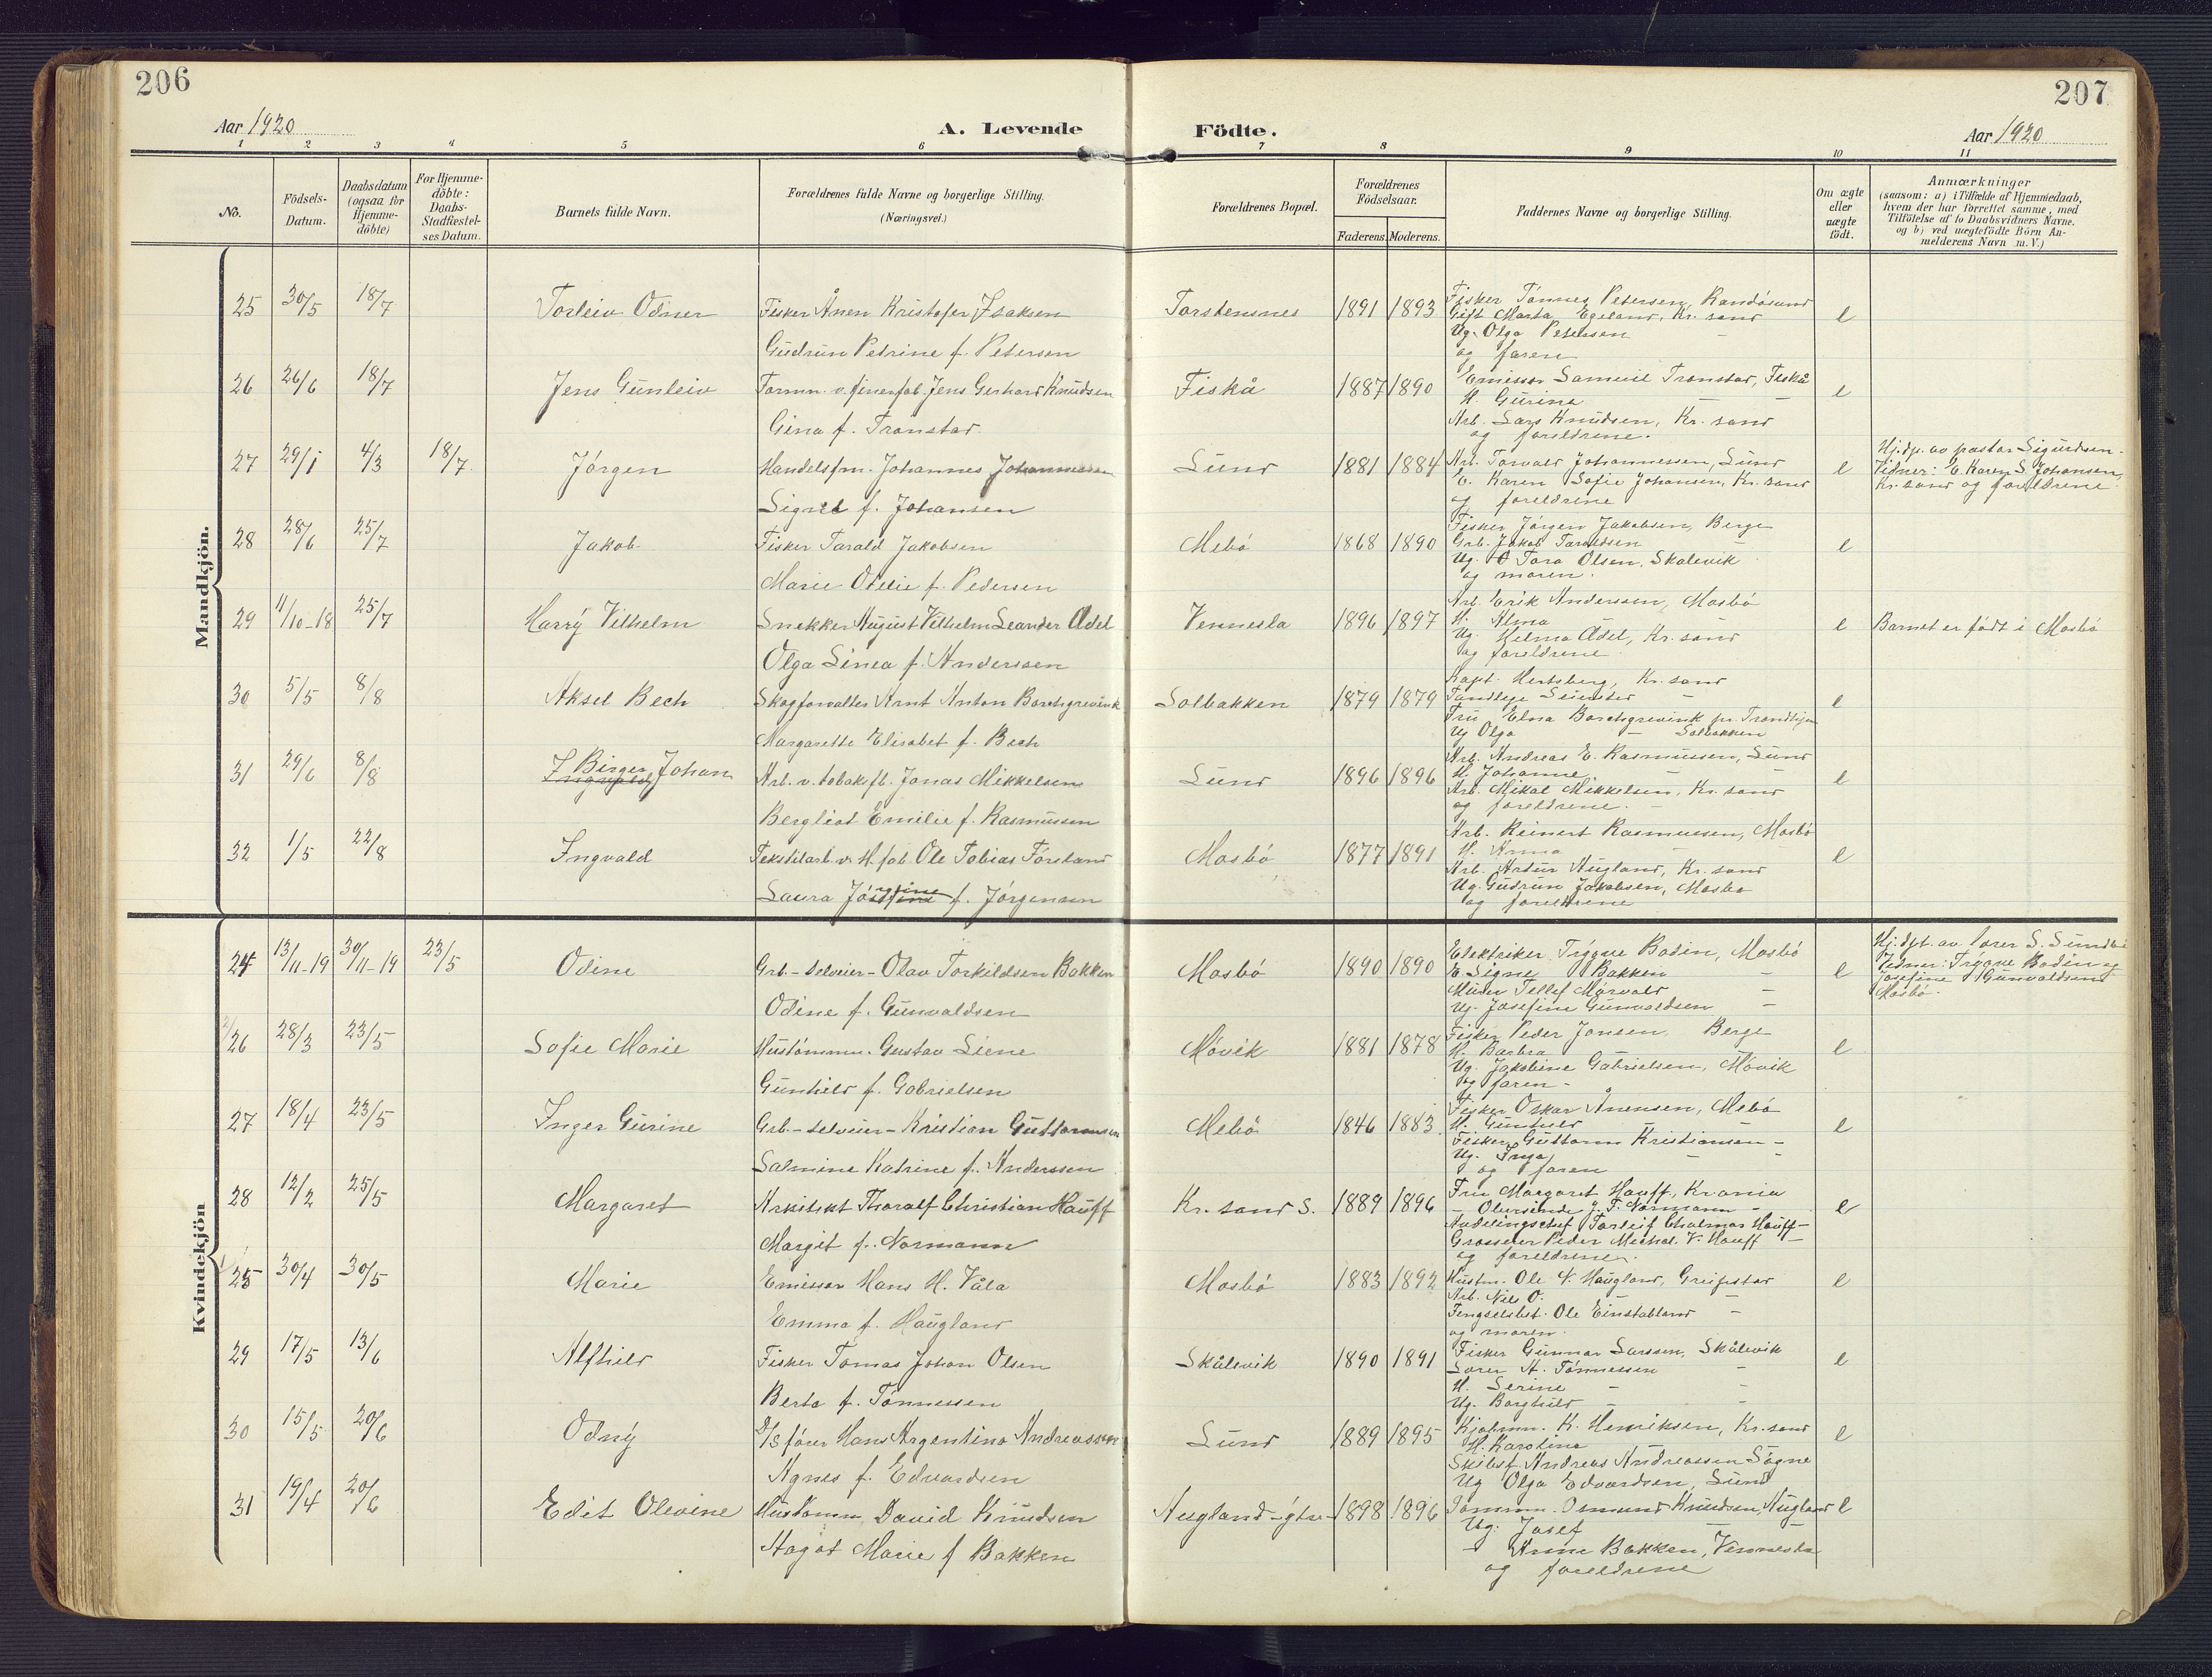 206
207
Aar 1920
A. Levende
Födte.
Aar 1920
1 2 3 4 5 6 7 8 9 10 11
No.
Födsels-
Datum.
Daabsdatum
(ogsaa for
Hjemme-
döbte)
For Hjemme-
döbte:
Daabs-
Stadfæstel-
ses Datum.
Barnets fulde Navn.
Forældrenes fulde Navne og borgerlige Stilling.
(Næringsvei.)
Forældrenes Bopæl.
Forældrenes
Födselsaar.
Faderens. Moderens.
Faddernes Navne og borgerlige Stilling.
Om ægte
eller
uægte
födt.
Anmærkninger
(saasom: a) i Tilfælde af Hjemmedaab,
hvem der har forrettet samme, med
Tilföielse af to Daabsvidners Navne.
og b) ved uægtefödte Börn An-
melderens Navn m.V.)
Mandkjön.
25 30/5 18/7 Torleiv Odner Fisker Ånen Kristofer Isaksen Torstensnes 1891 1893 e
Gudrun Petrine f. Petersen
Fisker Tönnes Petersen, Randösund
Gift Marta Egeland, Kr. sand
Ug. Olga Petersen -
og faren
26 26/6 18/7 Jens Gunleiv Formn. v. finerfab. Jens Gerhard Knudsen Fiskå 1887 1890 e
Gina f. Tronstad
Emissær Samuel Tronstad, Fiskå
H. Gurine - -
Arb. Lars Knudsen, Kr. sand
og foreldrene.
27 29/1 4/3 18/7 Jörgen Handelsfm. Johannes Johannessen Lund 1881 1884 e
Signe f. Johansen
Arb. Torvald Johannessen, Lund
E. Karen Sofie Johansen, Kr. sand
og foreldrene
Hj.dp. av pastor Sigurdsen.
Vidner: E. Karen S. Johansen,
Kr. sand og foreldrene
28 28/6 25/7 Jakob Fisker Tarald Jakobsen Mebö 1868 1890 e
Marie Otilie f. Pedersen
Fisker Jörgen Jakobsen, Berge
Grb. Jakob Taraldsen -
Ug. O Tora Olsen, Skålevik
og moren.
29 11/10-18 25/7 Harry Vilhelm Snekker August Vilhelm Leander Odel Vennesla 1896 1897 e Barnet er födt i Mosbö
Olga Linea f. Anderssen
Arb. Erik Anderssen, Mosbö
H. Alma -
Ug. Helma Odel, Kr. sand
og foreldrene
30 5/5 8/8 Aksel Bech Skogforvalter Arnt Anton Borchgrevink Solbakken 1879 1879 e
Margarette Elisabet f. Bech
Kapt. Hertzberg, Kr. sand
Tandlege -
Fru Elna Borchgrevink pr. Trondhjem
Ug Olga - Solbakken
31 29/6 8/8 Birger Johan Arb. v. tobaksfb. Jonas Mikkelsen Lund 1896 1896 e
Bergliot Emilie f. Rasmussen
Arb. Andreas E. Rasmussen, Lund
H. Johanne -
Arb. Mikal Mikkelsen, Kr. sand
og foreldrene. -
32 1/5 22/8 Ingvald Tekstilarb. v. H. fab. Ole Tobias Försland Mosbö 1877 1891 e
Laura f. Jörgensen
Arb. Reinert Rasmussen, Mosbö
H. Anna -
Arb. Artur Augland, Kr. sand
Ug. Gudrun Jakobsen, Mosbö
og foreldrene
Kvindekjön
24 13/11-19 30/11-19 23/5 Odine Grb. - selveier - Olav Torkildsen Bakken Mosbö 1890 1890 e
Odine f. Gunvaldsen
Elektriker Trygve Bodin, Mosbö
E. Signe Bakken -
Murer Tellef Mörvald -
Ug. Josefine Gunvaldsen -
Hj. dpt. av lærer S. Sundbø
Vidner: Trygve Bodin og
Josefine Gunvaldsen
Mosbö.
26 28/3 23/5 Sofie Marie Hustömmn. Gustav Liene Mövik 1881 1878 e
Gunhild f. Gabrielsen
Fisker Peder Jonsen, Berge
H. Barbra -
Ug. Jakobine Gabrielsen, Mövik
og faren -
27 18/4 23/5 Inger Gurine Grb. - selveier - Kristian Guttormsen Mebö 1846 1883 e
Salmine Katrine f. Anderssen
Fisker Oskar Ånensen, Mebö
H. Gunhild - -
Fisker Guttorm Kristiansen -
Ug. Inga - -
og faren
28 12/2 25/5 Margaret Arkitekt Thoralf Christian Hauff Kr. sand S. 1889 1896 e
Margit f. Normann
Fru Margaret Hauff, Krania
- Oberstinde J. F. Normann -
Avdelingschef Torleif Chalmar Hauff -
Grosserer Peder Michal V. Hauff -
og foreldrene.
25 30/4 30/5 Marie Emissær Hans H. Våla Mosbö 1883 1892 e
Emma f. Haugland
Hustm. Ole N. Haugland, Greipstad
Arb. Nils O. - -
Fengselsbet. Ole Einstabland -
og moren.
29 17/5 13/6 Alfhild Fisker Tomas Johan Olsen Skålevik 1890 1891 e
Berta f. Tönnessen
Fisker Gunnar Larssen, Skålevik
Lærer A. Tönnessen -
H. Serine - -
Ug. Borghild - -
30 15/5 20/6 Odny D/S förer Hans Argentino Andreassen Lund 1889 1895 e
Agnes f. Edvardsen
Kjöbmn. K. Henriksen, Kr. sand
H. Karoline
Skibsf. Andreas Andreassen Sögne
Ug Olga Edvardsen, Lund
31 19/4 20/6 Edit Olevine Hustömm. David Knudsen Augland-ytre 1898 1896 e
Aagot Marie f Bakken
Tömmm. Osmund Knudsen, Augland
Ug. Josef - -
- Anne Bakken, Vennesla
og foreldrene